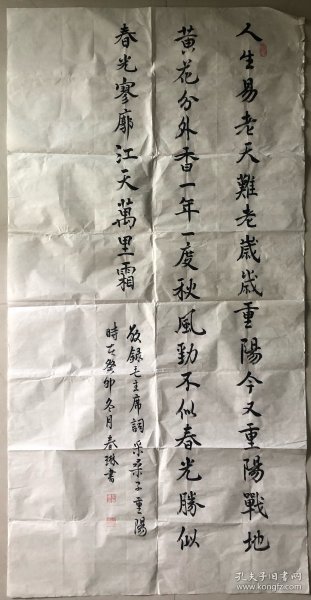 人生易老天難老歲歲重陽今又重陽戰地
黃花分外香一年一度秋風勁不似春光勝似
春光寥廓江天萬里霜
敬錄毛主席詞采桑子重陽
時在癸卯冬月春琳書
孔夫子旧书网
www.kongfz.com